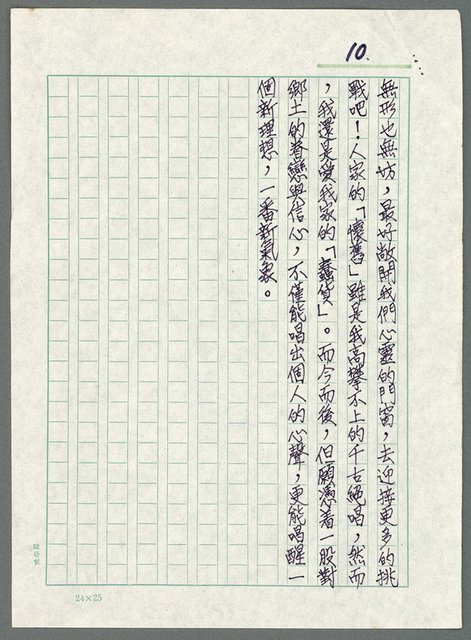 10.
無形也無妨，最好敞開我們心靈的門窗，去迎接更多的挑
戰吧！人家的「懷舊」雖是我高攀不上的千古絕唱，然而
，我還是愛我家的「蠢貨」。而今而後，但願憑着一股對
鄉土的眷戀與信心，不僅能唱出個人的心聲，更能唱醒一
個新理想，一番新氣象。
24×25